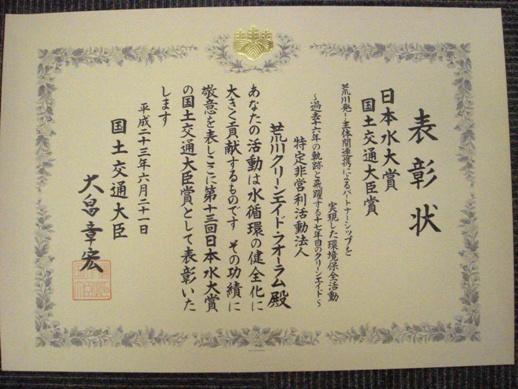 表彰状
日本水大賞
国土交通大臣賞
荒川発！主体間連携によるパートナーシップを
実現した環境保全活動
～過去十六年の軌跡と飛躍する十七年目のクリーンエイド～
特定非営利活動法人
荒川クリーンエイド・フォーラム殿
あなたの活動は水循環の健全化に
大きく貢献するものです その功績に
敬意を表しここに第十三回日本水大賞
の国土交通大臣賞として表彰いた
します
平成二十三年六月二十一日
国土交通大臣
大畠章宏